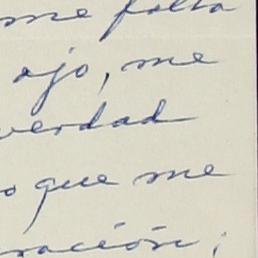 me falta
ojo, me
verdad
o que me
ración;